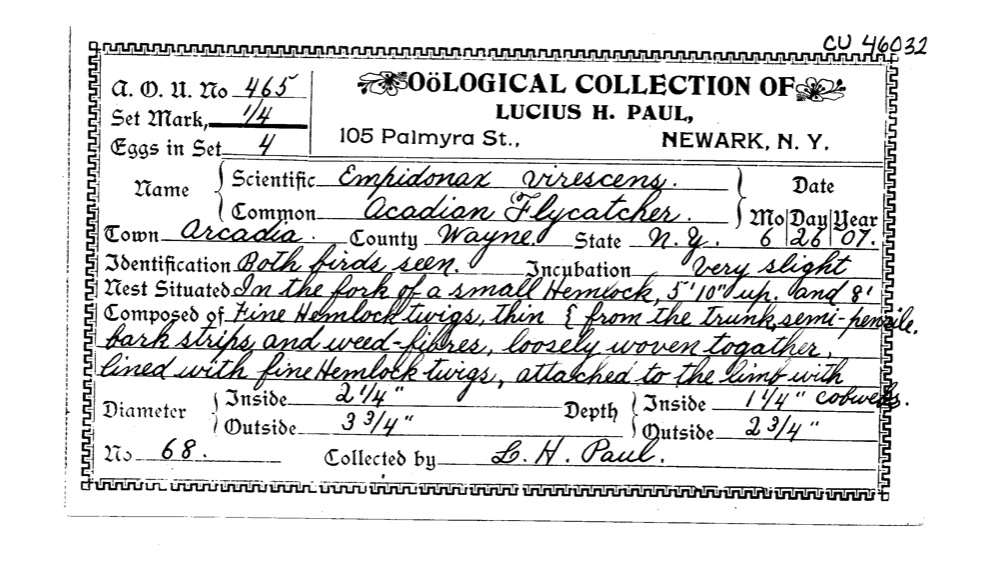 CU 46032
A. O. U. No 465
Set Mark, 1/4
Eggs in Set 4
OöLOGICAL COLLECTION OF
LUCIUS H. PAUL,
105 Palmyra St., NEWARK, N. Y.
Name { Scientific Empidonax virescens. } Date
Common Acadian Flycatcher. Mo Day Year
Town Arcadia. County Wayne State N. Y. 6 26 07.
Identification Both birds seen. Incubation Very slight
Nest Situated In the fork of a small Hemlock, 5'10" up. and 8'
Composed of Fine Hemlock twigs, thin { from the trunk, semi-pensile.
bark strips, and weed-fibres, loosely woven togather,
lined with fine Hemlock twigs, attached to the limb with
cobwebs.
Diameter { Inside 2 1/4" Depth { Inside 1 1/4"
Outside 3 3/4" Outside 2 3/4"
No 68. Collected by L. H. Paul.